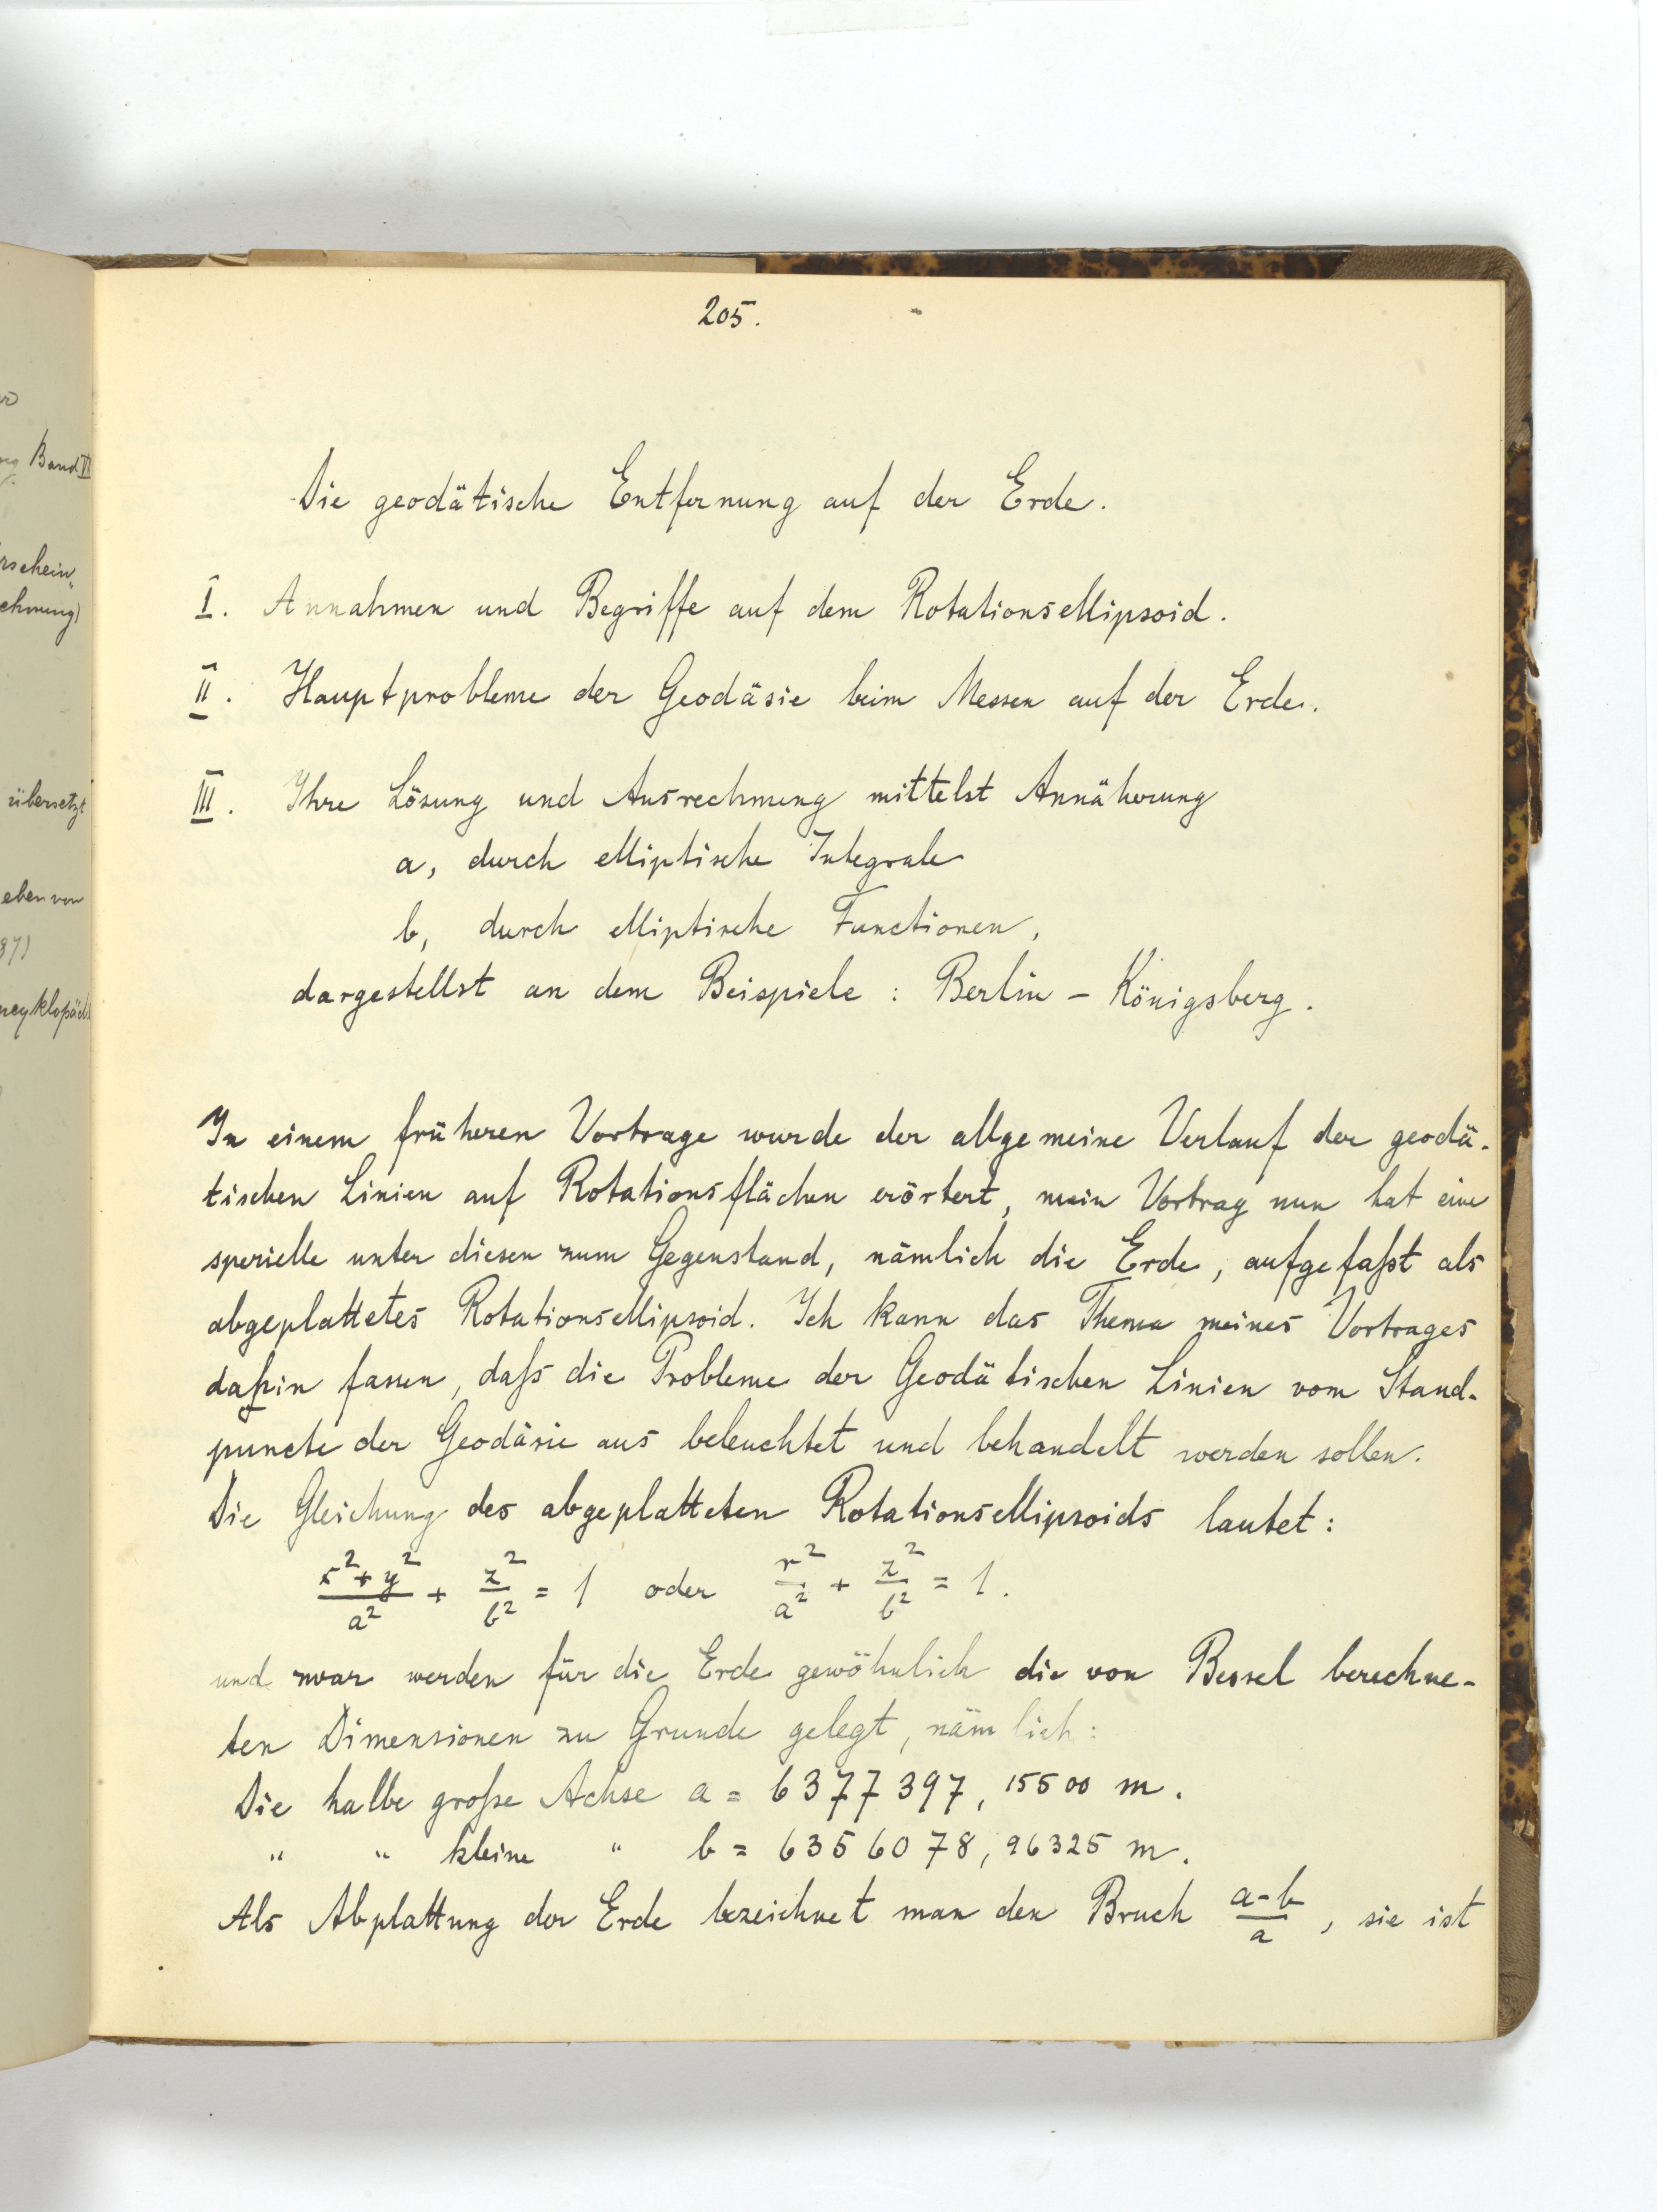 205.
Die geodätische Entfernung auf der Erde.
I. Annahmen und Begriffe auf dem Rotationsellipsoid.
II. Hauptprobleme der Geodäsie beim Messen auf der Erde.
III. Ihre Lösung und Ausrechnung mittelst Annäherung
a, durch elliptische Integrale
b, durch elliptische Functionen,
dargestellt an dem Beispiele : Berlin – Königsberg.
In einem früheren Vortrage wurde der allgemeine Verlauf der geodä-
tischen Linien auf Rotationsflächen erörtert, mein Vortrag nun hat eine
spezielle unter diesen zum Gegenstand, nämlich die Erde, aufgefaßt als
abgeplattetes Rotationsellipsoid. Ich kann das Thema meines Vortrages
dahin fassen, daß die Probleme der Geodätischen Linien vom Stand-
puncte der Geodäsie aus beleuchtet und behandelt werden sollen.
Die Gleichung des abgeplatteten Rotationsellipsoids lautet:
(x²+y²)/a² + z²/b² = 1 oder r²/a² + z²/b² = 1.
und zwar werden für die Erde gewöhnlich die von Bessel berechne-
ten Dimensionen zu Grunde gelegt, nämlich:
Die halbe große Achse a = 6377397,15500 m.
" " kleine " b = 6356078,96325 m.
Als Abplattung der Erde bezeichnet man den Bruch (a-b)/a, sie ist
Band VI
rschein"
chnung)
übersetzt
eben von
87)
ncyklopäd